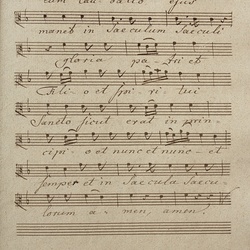 tum lau datio ejus
manet in Saeculum Saeculi
gloria pa- tri et
Fili- o et spi- ri- tui
Sancto sicut erat in prin-
cipi- o et nunc et nunc- et
semper et in Saecula Saecu-
lorum a- men, amen.